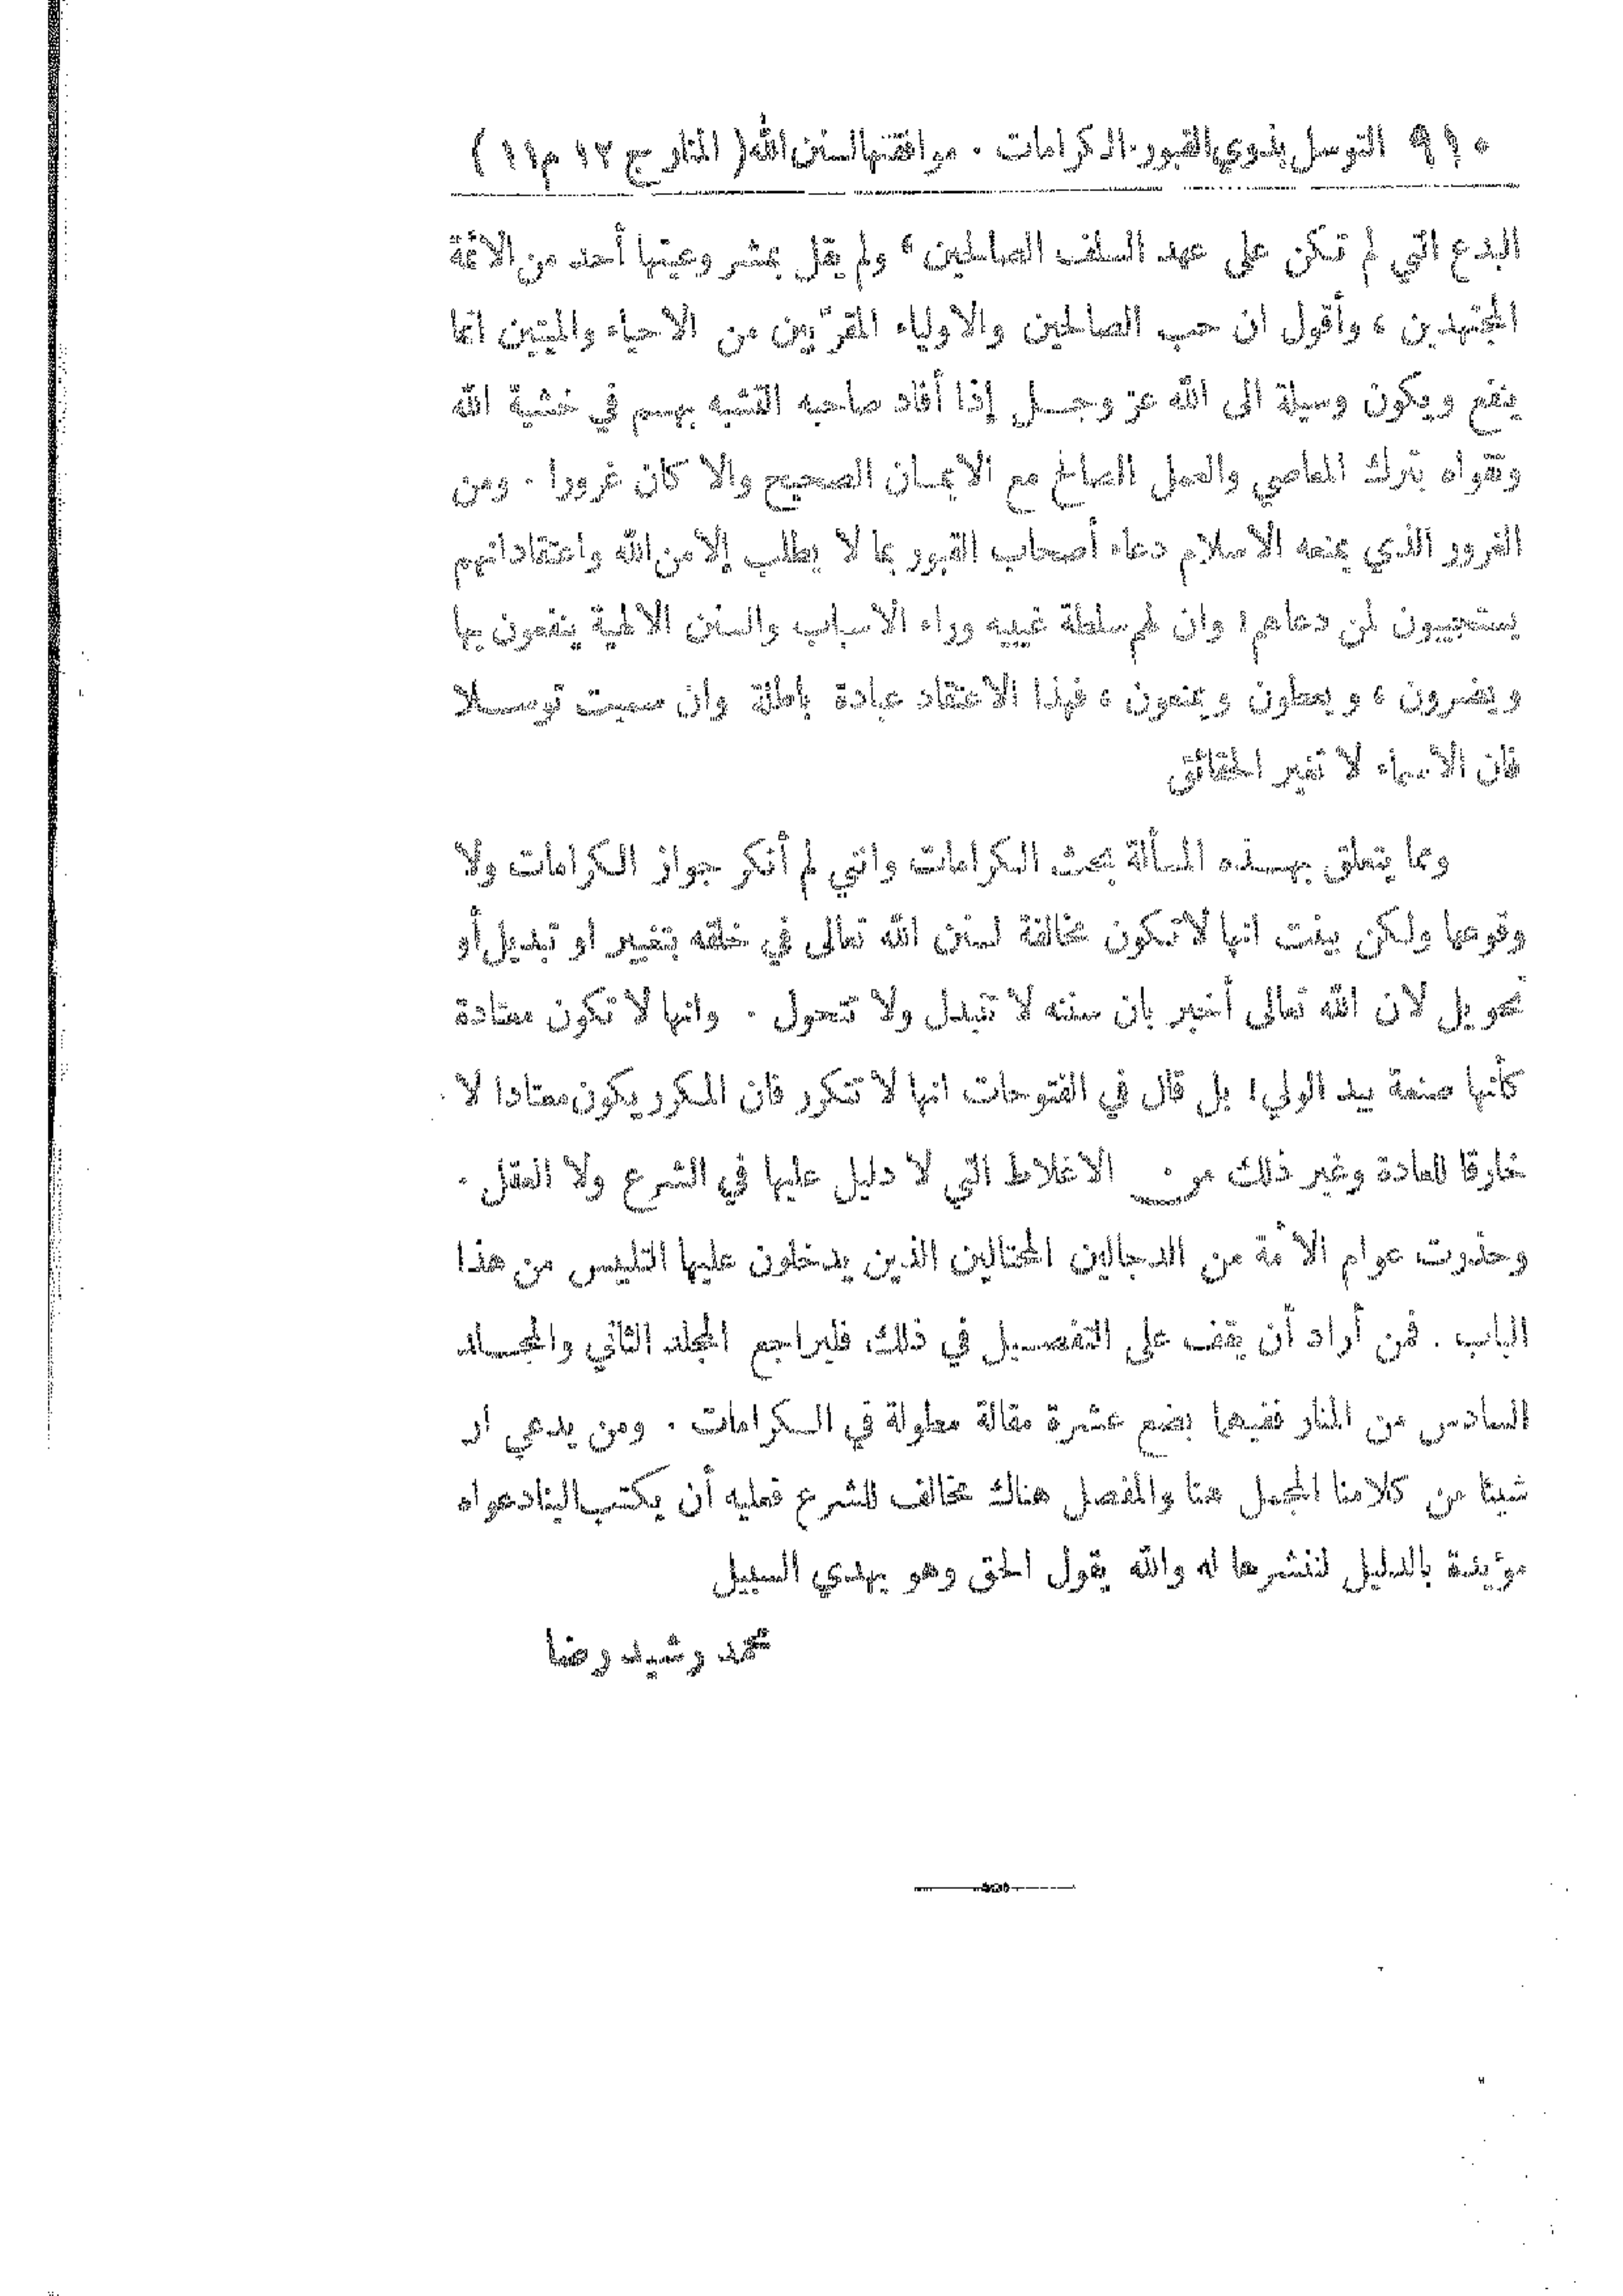 ٩١٠ التوسل بذوي القبور. الكرامات. موافقتها لسنن الله (المنار ج ١٢ م ١١)
البدع التي لم تكن على عهد السلف الصالحين، ولم يقل بمشروعيتها أحد من الائمة
المجتهدين، وأقول ان حب الصالحين والاولياء المقرّبين من الاحياء والميتين انما
ينفع ويكون وسيلة الى الله عز وجل إذا أفاد صاحبه التشبه بهم في خشية الله
وتقواه بترك المعاصي والعمل الصالح مع الايمان الصحيح والا كان غرورا. ومن
الغرور الذي يمنعه الاسلام دعاء أصحاب القبور بما لا يطلب إلا من الله واعتقاد انهم
يستجيبون لمن دعاهم؛ وان لهم سلطة غيبيه وراء الاسباب والسنن الالهية ينفعون بها
ويضرون، ويعطون ويمنعون، فهذا الاعتقاد عبادة باطلة وان سميت توسلا
فان الاسماء لا تغير الحقائق
ومما يتعلق بهذه المسألة بحث الكرامات واني لم أنكر جواز الكرامات ولا
وقوعها ولكن بينت انها لا تكون مخالفة لسنن الله تعالى في خلقه بتغيير او تبديل أو
تحويل لان الله تعالى أخبر بان سننه لا تتبدل ولا تتحول. وانها لا تكون معتادة
كأنها صنعة بيد الولي؛ بل قال في الفتوحات انها لا تتكرر فان المكرر يكون معتادا لا
خارقا للعادة وغير ذلك من الاغلاط التي لا دليل عليها في الشرع ولا العقل.
وحذرت عوام الأمة من الدجالين المحتالين الذين يدخلون عليها التلبيس من هذا
الباب. فمن أراد أن يقف على التفصيل في ذلك فليراجع المجلد الثاني والمجلد
السادس من المنار ففيهما بضع عشرة مقالة مطولة في الكرامات. ومن يدعي ان
شيئا من كلامنا المجمل هنا والمفصل هناك مخالف للشرع فعليه أن يكتب الينا دعواه
مؤيدة بالدليل لننشرها له والله يقول الحق وهو يهدي السبيل
محمد رشيد رضا